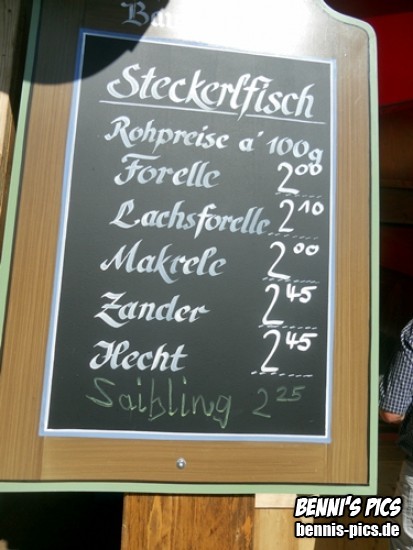 Steckerlfisch
Rohpreise a' 100g
Forelle 2.00
Lachsforelle 2.10
Makrele 2.00
Zander 2.45
Hecht 2.45
Saibling 2.25
BENNI'S PICS
bennis-pics.de